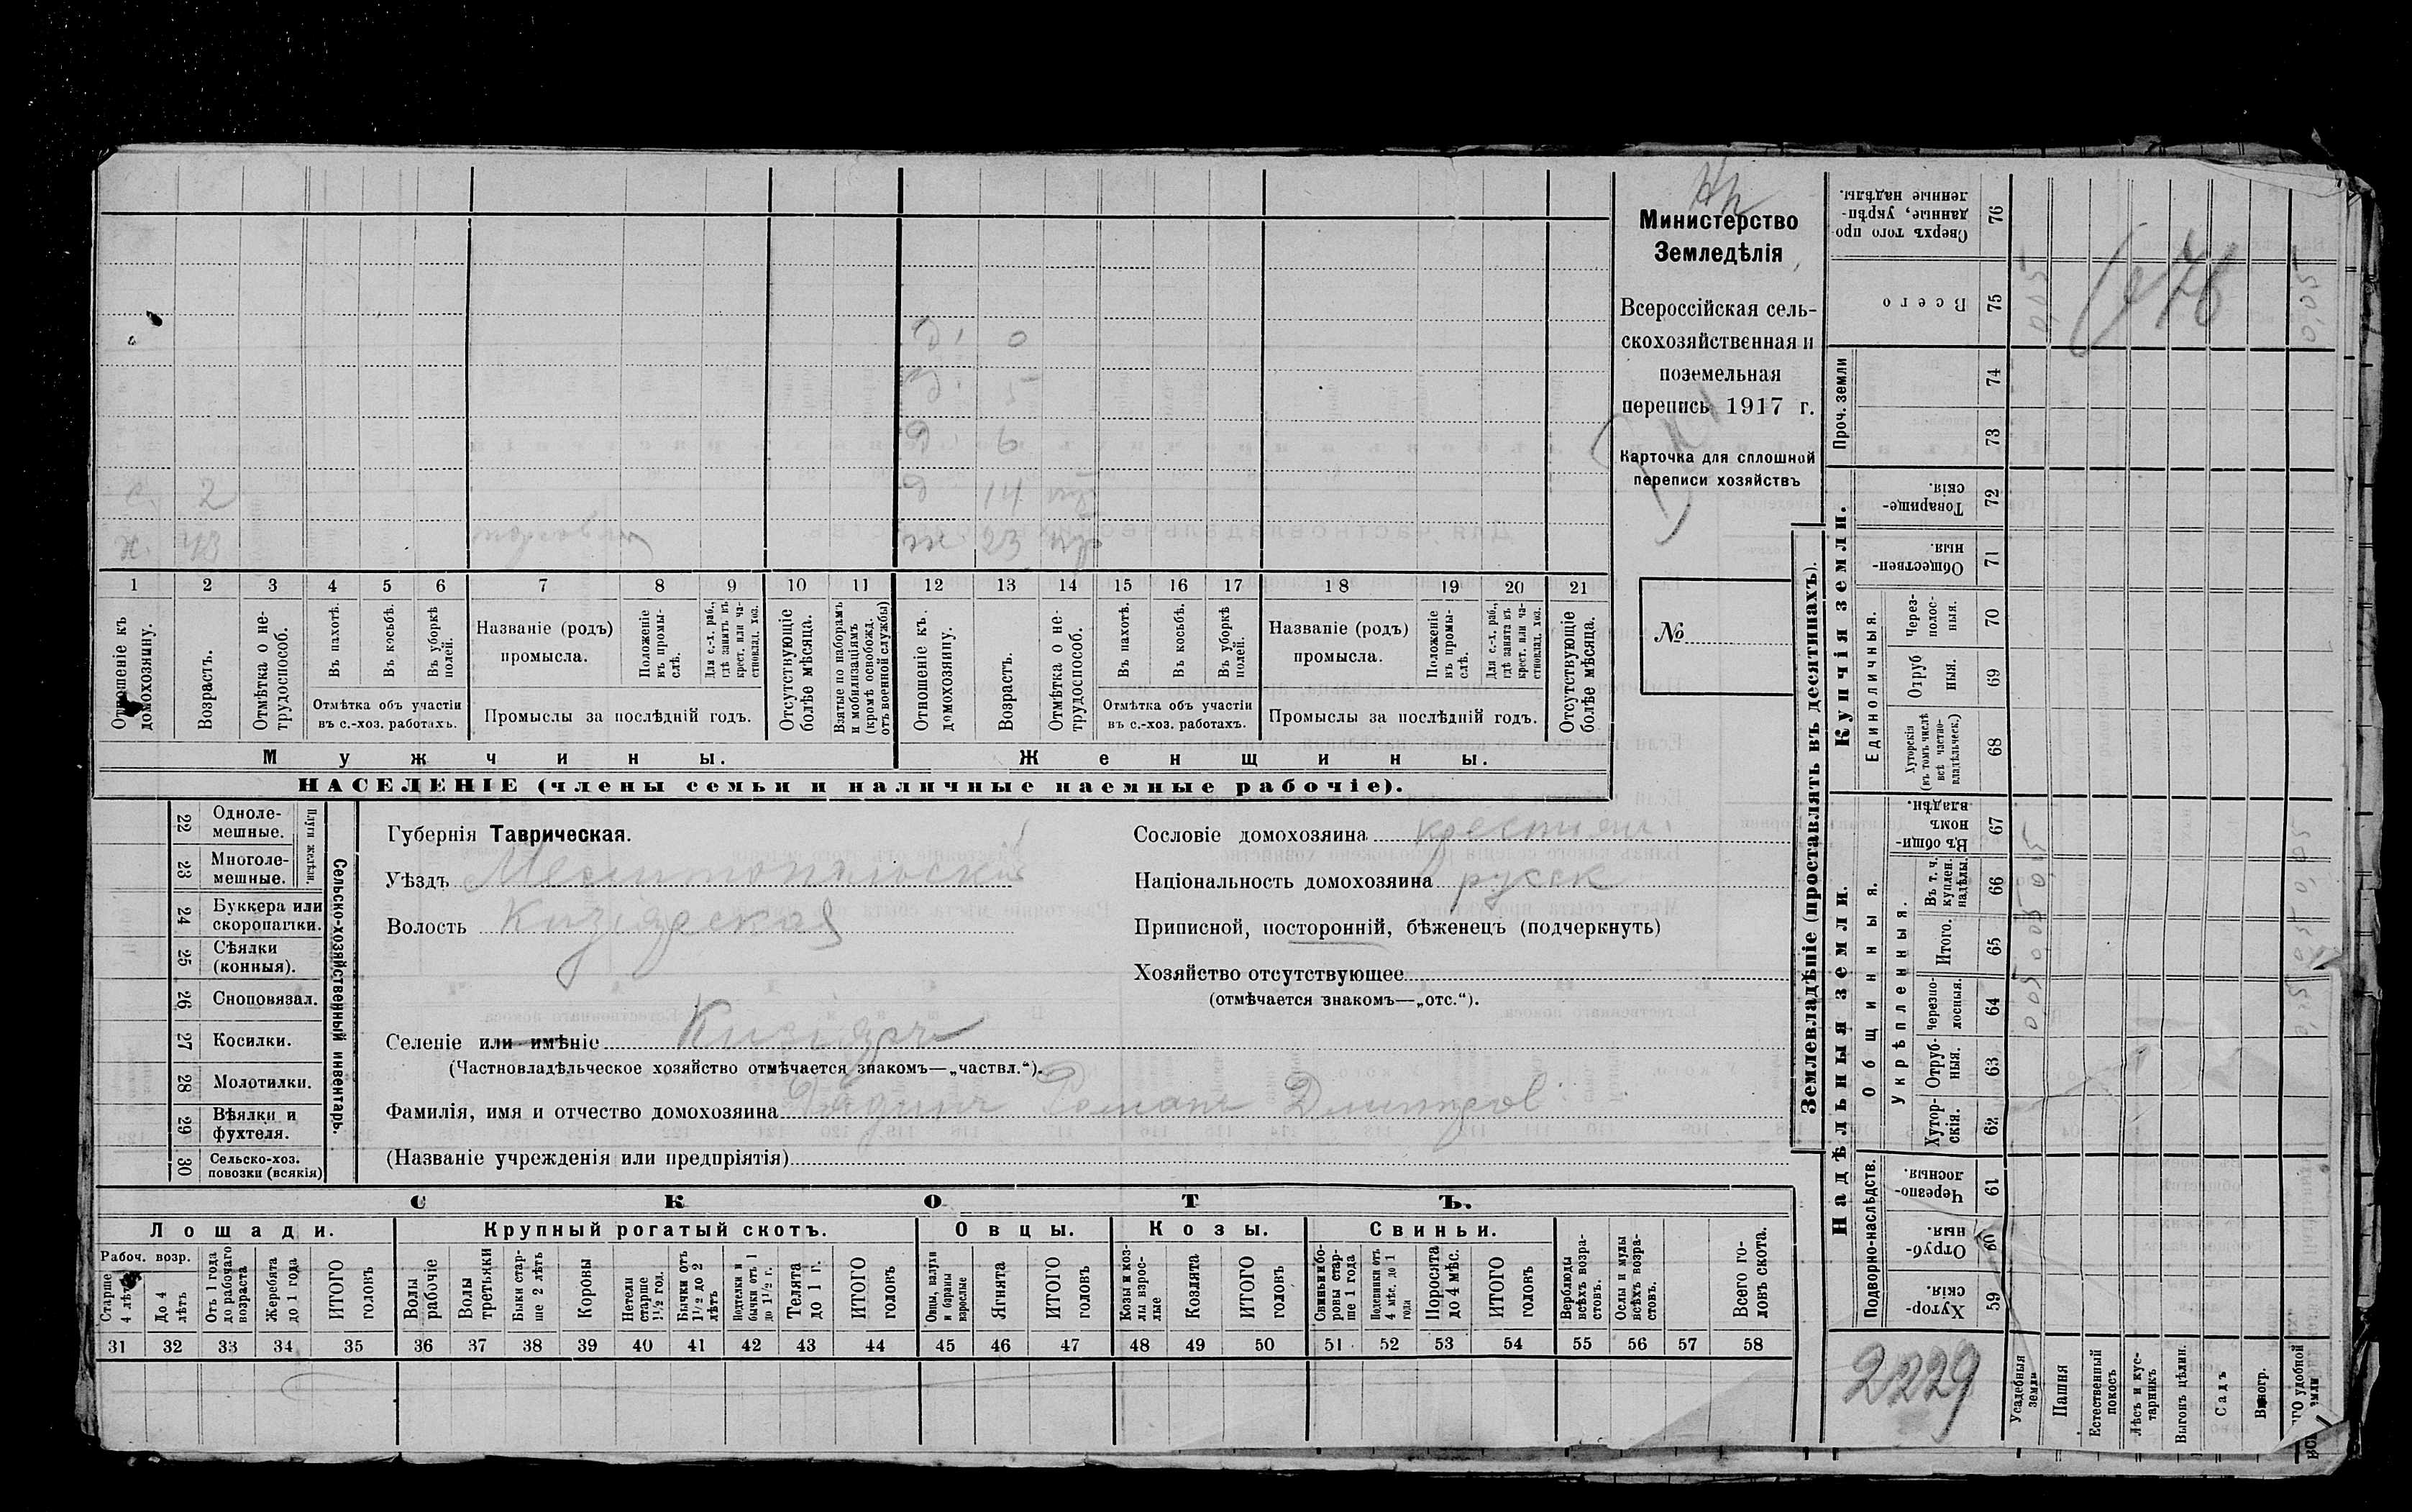 Нп
Министерство
Земледѣлія
Всероссійская сель-
скохозяйственная и
поземельная
перепись 1917 г.
Карточка для сплошной
переписи хозяйствъ
№
Д. 0
Д. 5
Д. 6
С. 2 Д 14
х. 43 ж 23
1 2 3 4 5 6 7 8 9 10 11 12 13 14 15 16 17 18 19 20 21
Отношеніе къ домохозяину.
Возрастъ.
Отмѣтка о не-трудоспособ.
Въ пахотѣ.
Въ косьбѣ.
Въ уборкѣ полей.
Отмѣтка объ участіи
въ с.-хоз. работахъ.
Названіе (родъ)
промысла.
Положеніе въ промы-слѣ.
Для с.-х. раб., гдѣ занятъ въ крест. или ча-стновлад. хоз.
Промыслы за послѣдній годъ.
Отсутствующіе болѣе мѣсяца.
Взятые по наборамъ и мобилизаціямъ (кромѣ освобожд. отъ военной службы)
Отношеніе къ домохозяину.
Возрастъ.
Отмѣтка о не-трудоспособ.
Въ пахотѣ.
Въ косьбѣ.
Въ уборкѣ полей.
Отмѣтка объ участіи
въ с.-хоз. работахъ.
Названіе (родъ)
промысла.
Положеніе въ промы-слѣ.
Для с.-х. раб., гдѣ занята въ крест. или ча-стновлад. хоз.
Промыслы за послѣдній годъ.
Отсутствующіе болѣе мѣсяца.
Мужчины. Женщины.
НАСЕЛЕНІЕ (члены семьи и наличные наемные рабочіе).
22 Одноле-мешные.
23 Многоле-мешные.
Плуги желѣзн.
24 Буккера или скоропашки.
25 Сѣялки (конныя).
26 Сноповязал.
27 Косилки.
28 Молотилки.
29 Вѣялки и фухтеля.
30 Сельско-хоз. повозки (всякія)
Сельско-хозяйственный инвентарь.
Губернія Таврическая.
Уѣздъ Мелитопольскій
Волость Кизіярская
Селеніе или имѣніе Кизіяръ
(Частновладѣльческое хозяйство отмѣчается знакомъ—„частвл.“).
Фамилія, имя и отчество домохозяина Романъ Дмитров
(Названіе учрежденія или предпріятія)
Сословіе домохозяина крестьян.
Національность домохозяина русск
Приписной, посторонній, бѣженецъ (подчеркнуть)
Хозяйство отсутствующее
(отмѣчается знакомъ—„отс.“).
СКОТЪ.
Лошади. Крупный рогатый скотъ. Овцы. Козы. Свиньи.
Рабоч. возр.
Старше 4 лѣтъ
До 4 лѣтъ
Отъ 1 года до рабочаго возраста
Жеребята до 1 года
ИТОГО головъ
Волы рабочіе
Волы третьяки
Быки стар-ше 2 лѣтъ
Коровы
Нетели старше 1½ год.
Бычки отъ 1½ до 2 лѣтъ
Подтелки и бычки отъ 1 до 1½ г.
Телята до 1 г.
ИТОГО головъ
Овцы, валухи и бараны взрослые
Ягнята
ИТОГО головъ
Козы и коз-лы взрос-лые
Козлята
ИТОГО головъ
Свиньи и бо-ровы стар-ше 1 года
Подсвинки отъ 4 мѣс. до 1 года
Поросята до 4 мѣс.
ИТОГО головъ
Верблюды всѣхъ возра-стовъ.
Ослы и мулы всѣхъ возра-стовъ.
Всего го-ловъ скота.
31 32 33 34 35 36 37 38 39 40 41 42 43 44 45 46 47 48 49 50 51 52 53 54 55 56 57 58
Землевладѣніе (проставлять въ десятинахъ).
Надѣльныя земли. Купчія земли. Проч. земли
Подворно-наслѣдств.
Общинныя.
Укрѣпленныя.
Единоличныя.
Хутор-скія. 59
Отруб-ныя. 60
Черезпо-лосныя. 61
Хутор-скія. 62
Отруб-ныя. 63
Черезпо-лосныя. 64
Итого. 65
Въ т. ч. куплен. надѣлы. 66
Въ общин-номъ владѣн. 67
Хуторскія (въ томъ числѣ всѣ частно-владѣльческ.) 68
Отруб ныя. 69
Через-полос-ныя. 70
Обществен-ныя. 71
Товарище-скія. 72
73
74
Всего 75
Сверхъ того про-данные, укрѣп-ленные надѣлы. 76
Усадебныя земли
Пашня
Естественный покосъ
Лѣсъ и кус-тарникъ
Выгонъ цѣлин.
Садъ
Виногр.
0,05 0,05 0,05 0,05
0,05 0,05 0,05 0,05
2229